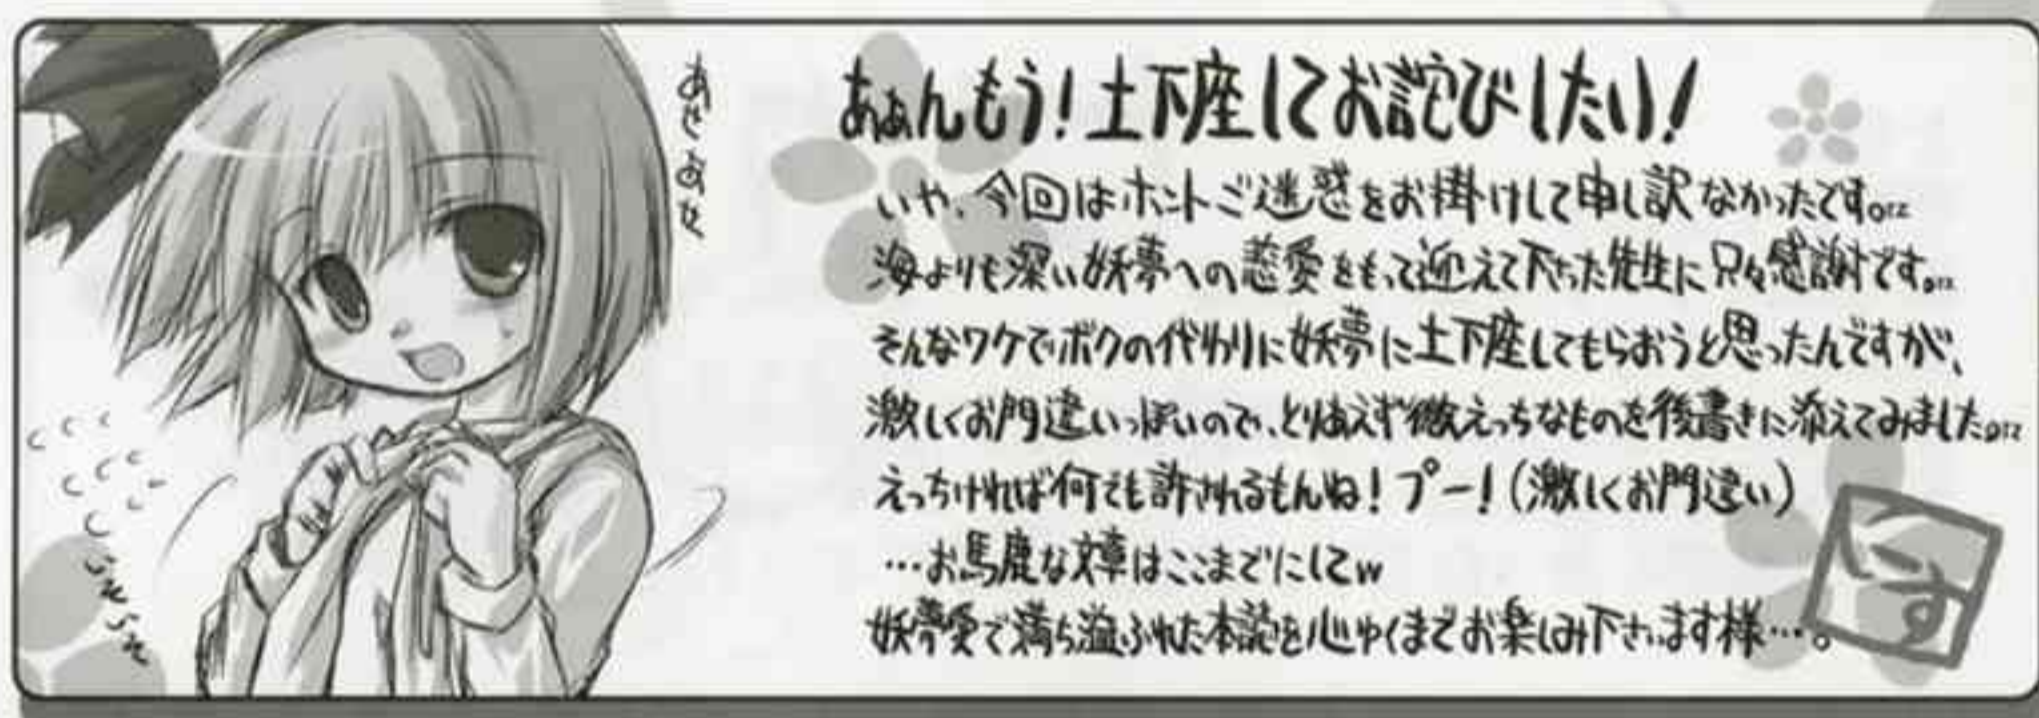 あぁんもう!土下座してお詫びしたい!
いや、今回はホントご迷惑をお掛けして申し訳なかったです。orz
海よりも深い妖夢への慈愛をもって迎えて下さった先生に只々感謝です。orz
そんなワケでボクの代わりに妖夢に土下座してもらおうと思ったんですが、
激しくお門違いっぽいので、とりあえず微えっちなものを後書きに添えてみました。orz
えっちければ何でも許されるもんね!プー!(激しくお門違い)
…お馬鹿な文章はここまでにしてw
妖夢愛で満ち溢ふれた本誌を心ゆくまでお楽しみ下さいます様…。
いそいそ